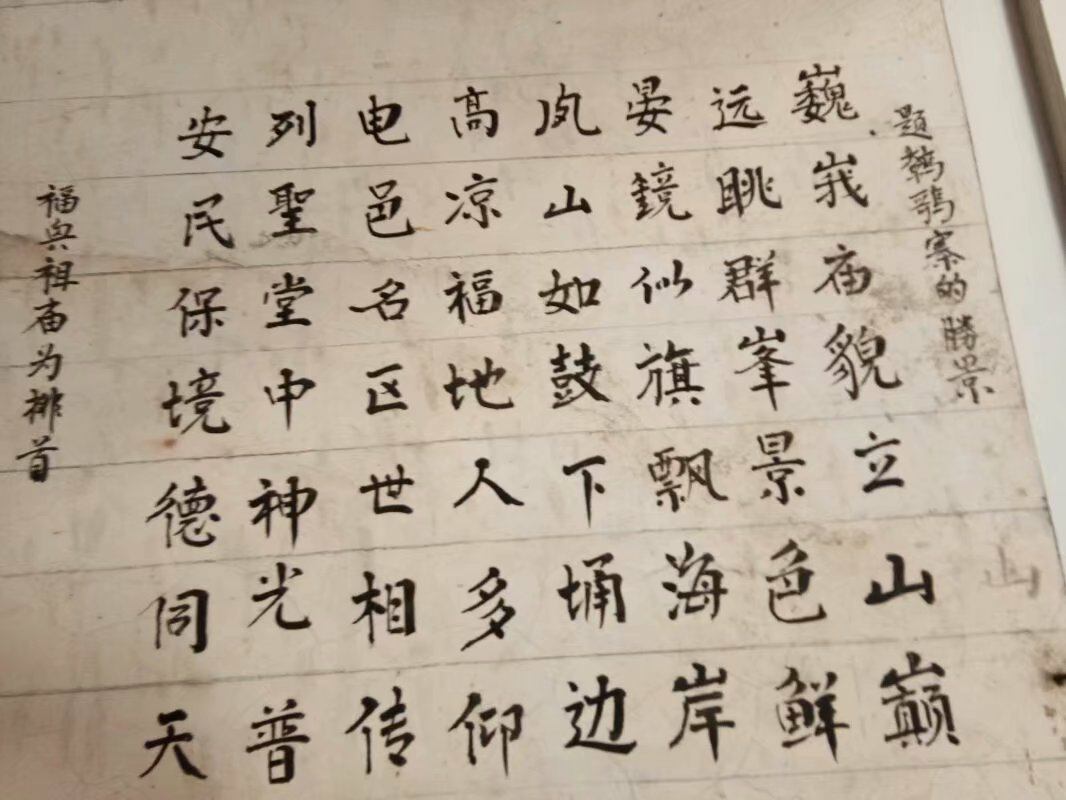 题寨的勝景
巍峩庙貌立山巅
远眺群峯景色鲜
晏鏡似旗飘海岸
凤山如鼓下埇边
高凉福地人多仰
电邑名区世相传
列聖堂中神光普
安民保境德同天
福祖庙为排首